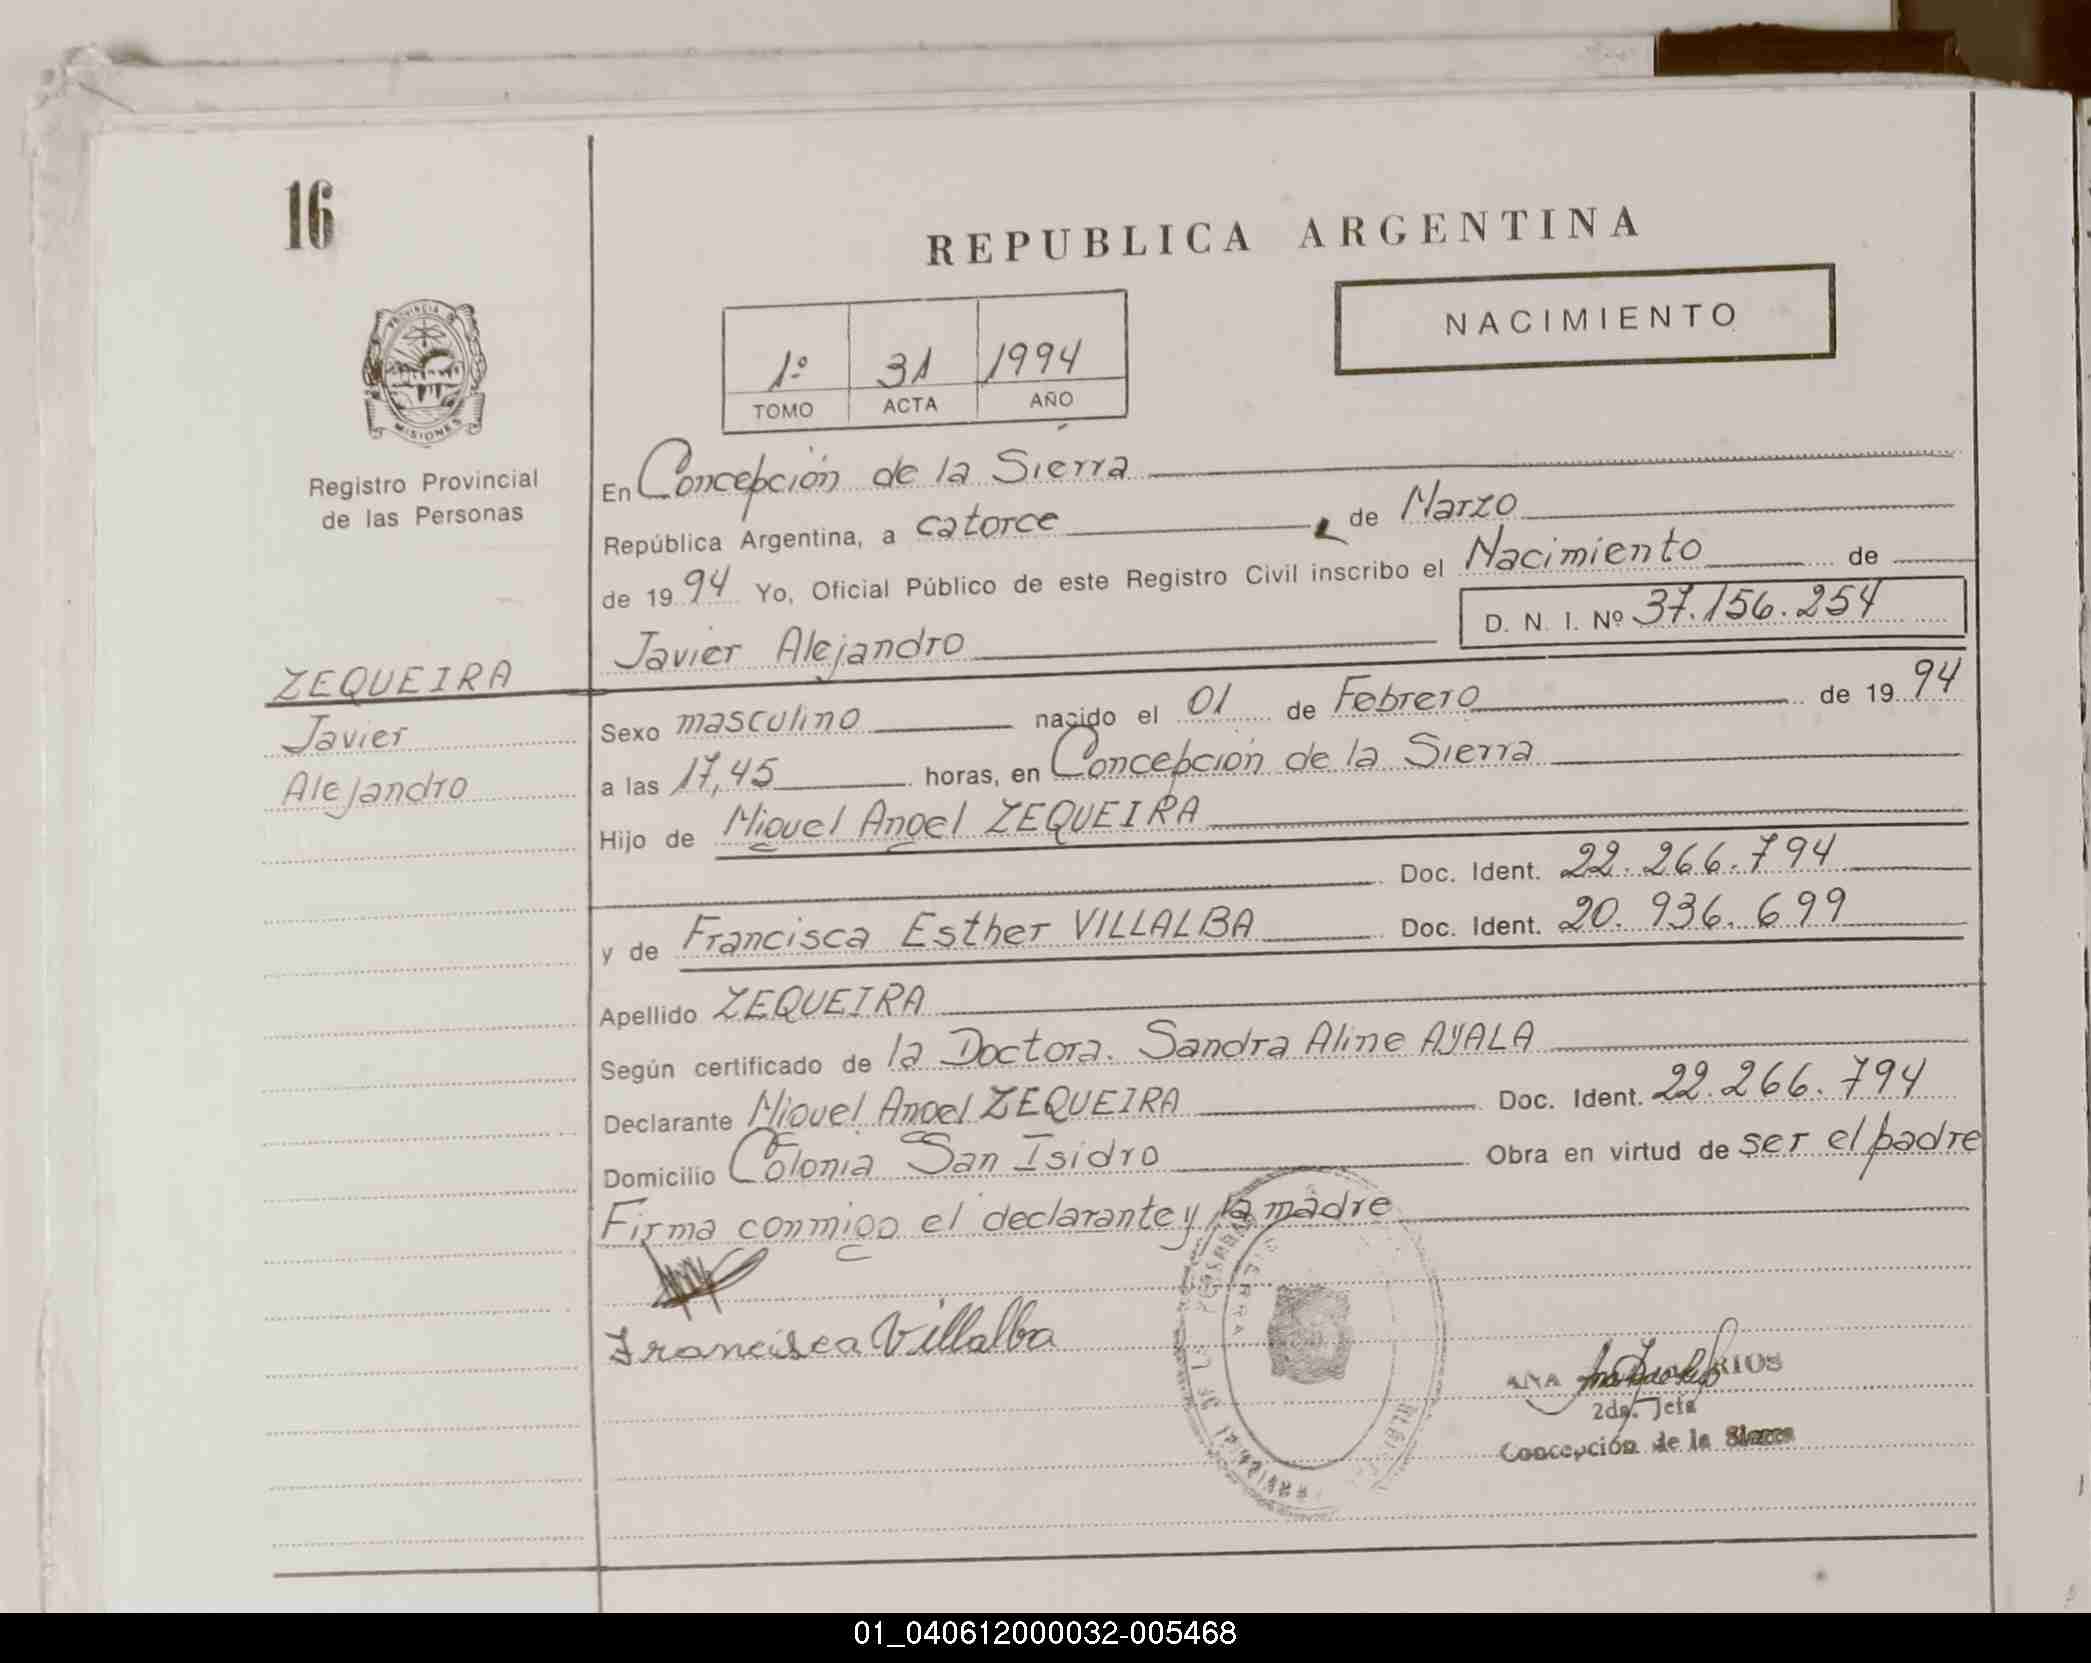 16
REPUBLICA ARGENTINA
NACIMIENTO
1º 31 1994
TOMO ACTA AÑO
PROVINCIA DE
MISIONES
Registro Provincial
de las Personas
En Concepción de la Sierra
República Argentina, a catorce de Marzo
de 1994 Yo, Oficial Público de este Registro Civil inscribo el Nacimiento de
D. N. I. Nº 37.156.254
Javier Alejandro
ZEQUEIRA
Javier
Alejandro
Sexo masculino nacido el 01 de Febrero de 1994
a las 17,45 horas, en Concepción de la Sierra
Hijo de Miguel Angel ZEQUEIRA
Doc. Ident. 22.266.794
y de Francisca Esther VILLALBA Doc. Ident. 20.936.699
Apellido ZEQUEIRA
Según certificado de la Doctora. Sandra Aline AYALA
Declarante Miguel Angel ZEQUEIRA Doc. Ident. 22.266.794
Domicilio Colonia San Isidro Obra en virtud de ser el padre
Firma conmigo el declarante y la madre
Francisca Villalba
ANA RIOS
2da. Jefa
Concepción de la Sierra
01_040612000032-005468